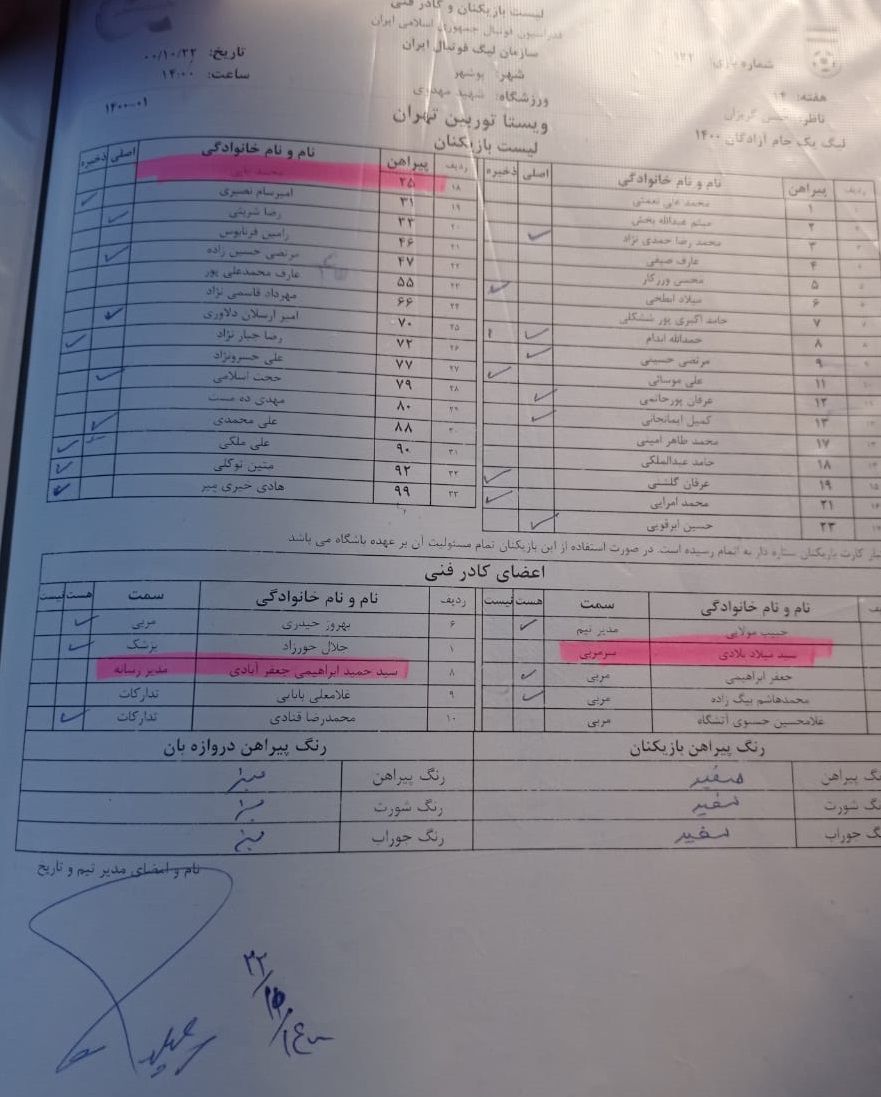 لیست بازیکنان و کادر فنی
فدراسیون فوتبال جمهوری اسلامی ایران
سازمان لیگ فوتبال ایران
شماره بازی: ۱۲۲
تاریخ: ۰۰/۱۰/۲۲
شهر: بوشهر
ساعت: ۱۴:۰۰
هفته: ۱۴
ورزشگاه: شهید مهدوی
ناظر: گریزان
۱۴۰۰-۰۱
ویستا توربین تهران
لیگ یک جام آزادگان ۱۴۰۰
لیست بازیکنان
ردیف پیراهن نام و نام خانوادگی اصلی ذخیره
۱ محمد علی نعمتی
۲ میثم عبدالله بخش
۳ محمد رضا حمدی نژاد
۴ عارف صیفی
۵ محسن ورزکار
۶ میلاد ابطحی
۷ حامد اکبری پور ششکلی
۸ حمدالله اندام
۹ مرتضی حسینی
۱۱ علی موسائی
۱۲ عرفان پورحاتمی
۱۳ کمیل ایمانجانی
۱۷ محمد طاهر امینی
۱۸ حامد عبدالملکی
۱۹ عرفان گلشنی
۲۱ محمد امرایی
۲۳ حسین ابرقویی
ردیف پیراهن نام و نام خانوادگی اصلی ذخیره
۱۸ ۲۵ محمد
۱۹ ۳۱ امیرسام نصیری
۲۰ ۳۳ رضا شربتی
۲۱ ۴۶ رامین فرنانوس
۲۲ ۴۷ مرتضی حسین زاده
۲۳ ۵۵ عارف محمدعلی پور
۲۴ ۶۶ مهرداد قاسمی نژاد
۲۵ ۷۰ امیر ارسلان دلاوری
۲۶ ۷۲ رضا جبار نژاد
۲۷ ۷۷ علی خسرونژاد
۲۸ ۷۹ حجت اسلامی
۲۹ ۸۰ مهدی ده مست
۳۰ ۸۸ علی محمدی
۳۱ ۹۰ علی ملکی
۳۲ ۹۲ متین توکلی
۳۳ ۹۹ هادی خیری میر
کارت بازیکنان ستاره دار به اتمام رسیده است. در صورت استفاده از این بازیکنان تمام مسئولیت آن بر عهده باشگاه می باشد
اعضای کادر فنی
نام و نام خانوادگی سمت هست نیست
حبیب مولایی مدیر تیم
سید میلاد بلادی سرمربی
جعفر ابراهیمی مربی
محمدهاشم بیگ زاده مربی
غلامحسین حسنوی آتشگاه مربی
ردیف نام و نام خانوادگی سمت هست نیست
۶ بهروز حیدری مربی
۱ جلال حورزاد پزشک
۸ سید حمید ابراهیمی جعفر آبادی مدیر رسانه
۹ غلامعلی بابایی تدارکات
۱۰ محمدرضا قنادی تدارکات
رنگ پیراهن بازیکنان
رنگ پیراهن سفید
رنگ شورت سفید
رنگ جوراب سفید
رنگ پیراهن دروازه بان
رنگ پیراهن سبز
رنگ شورت سبز
رنگ جوراب سبز
نام و امضای مدیر تیم و تاریخ
۲۲/۱۰/۱۴۰۰